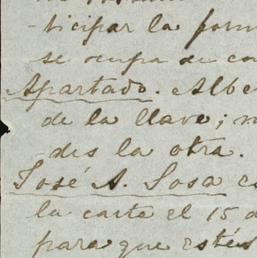 ticipar la form
se ocupa de co
Apartado. Albe
de la llave; n
des la otra.
José A. Sosa c
la carte el 15 d
para que estés